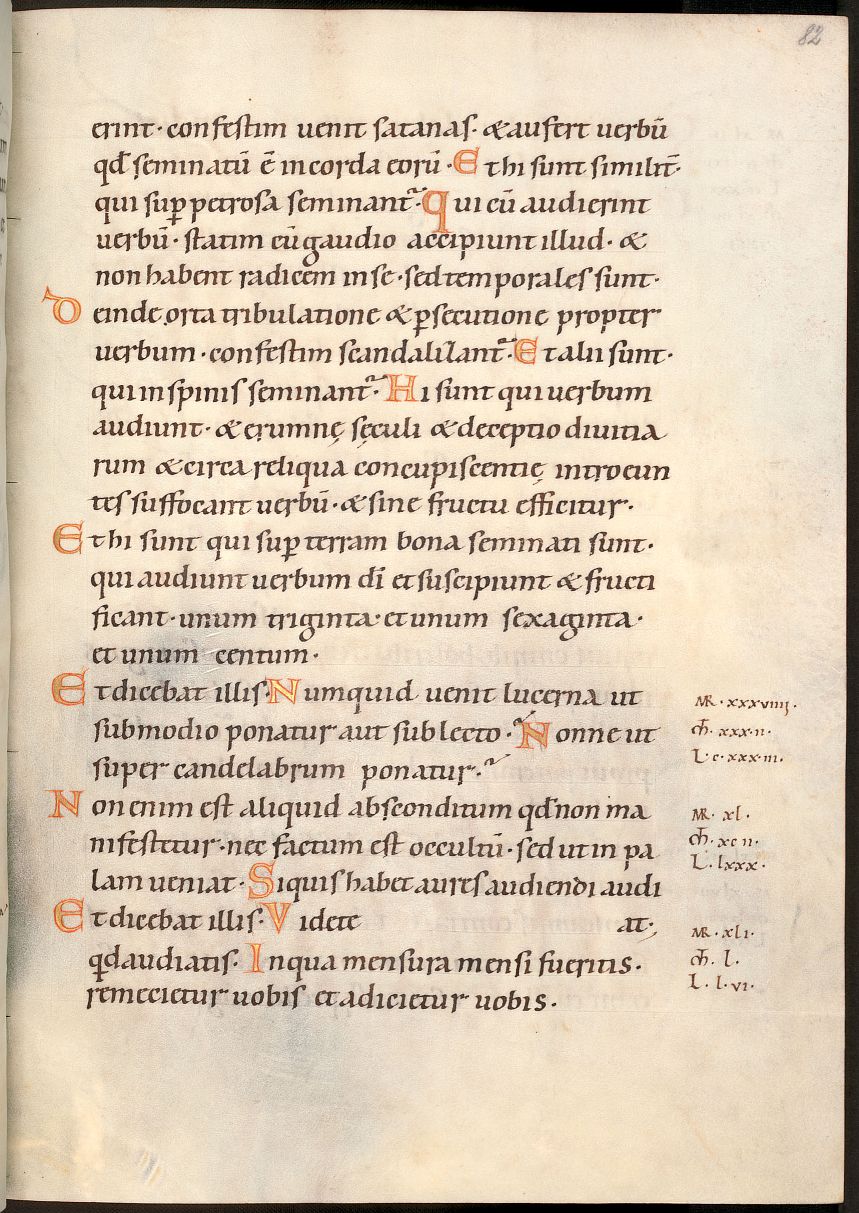 82
erint· confestim uenit satanas· & aufert uerbū
qđ seminatū ē in corda eorū· Et hi sunt similit̄·
qui sup̱ petrosa seminant᷑· Qui cū audierint
uerbū· statim cū gaudio accipiunt illud· &
non habent radicem in se· sed temporales sunt·
Deinde orta tribulatione & p̱secutione propter
uerbum· confestim scandalizant᷑· Et alii sunt·
qui in spinis seminant᷑· Hi sunt qui uerbum
audiunt· & erumnę sęculi & deceptio diuitia
rum & circa reliqua concupiscentię introeun
tes suffocant uerbū· & sine fructu efficitur·
Et hi sunt qui sup̱ terram bona seminati sunt·
qui audiunt uerbum dī et suscipiunt & fructi
ficant· unum triginta· et unum sexaginta·
et unum centum·
Et dicebat illis· Numquid uenit lucerna ut
sub modio ponatur aut sub lecto· Nonne ut
super candelabrum ponatur·
Non enim est aliquid absconditum qđ non ma
nifestetur· nec factum est occultū· sed ut in pa
lam ueniat· Siquis habet aures audiendi audi
Et dicebat illis· Videte at·
qđ audiatis· In qua mensura mensi fueritis·
remecietur uobis et adicietur uobis·
MR· xxxviiij·
Mh̄· xxx·ii·
L· c·xxx·iii·
MR· xl·
Mh̄· xcii·
L· lxxx·
MR· xli·
Mh̄· l·
L· l·vi·